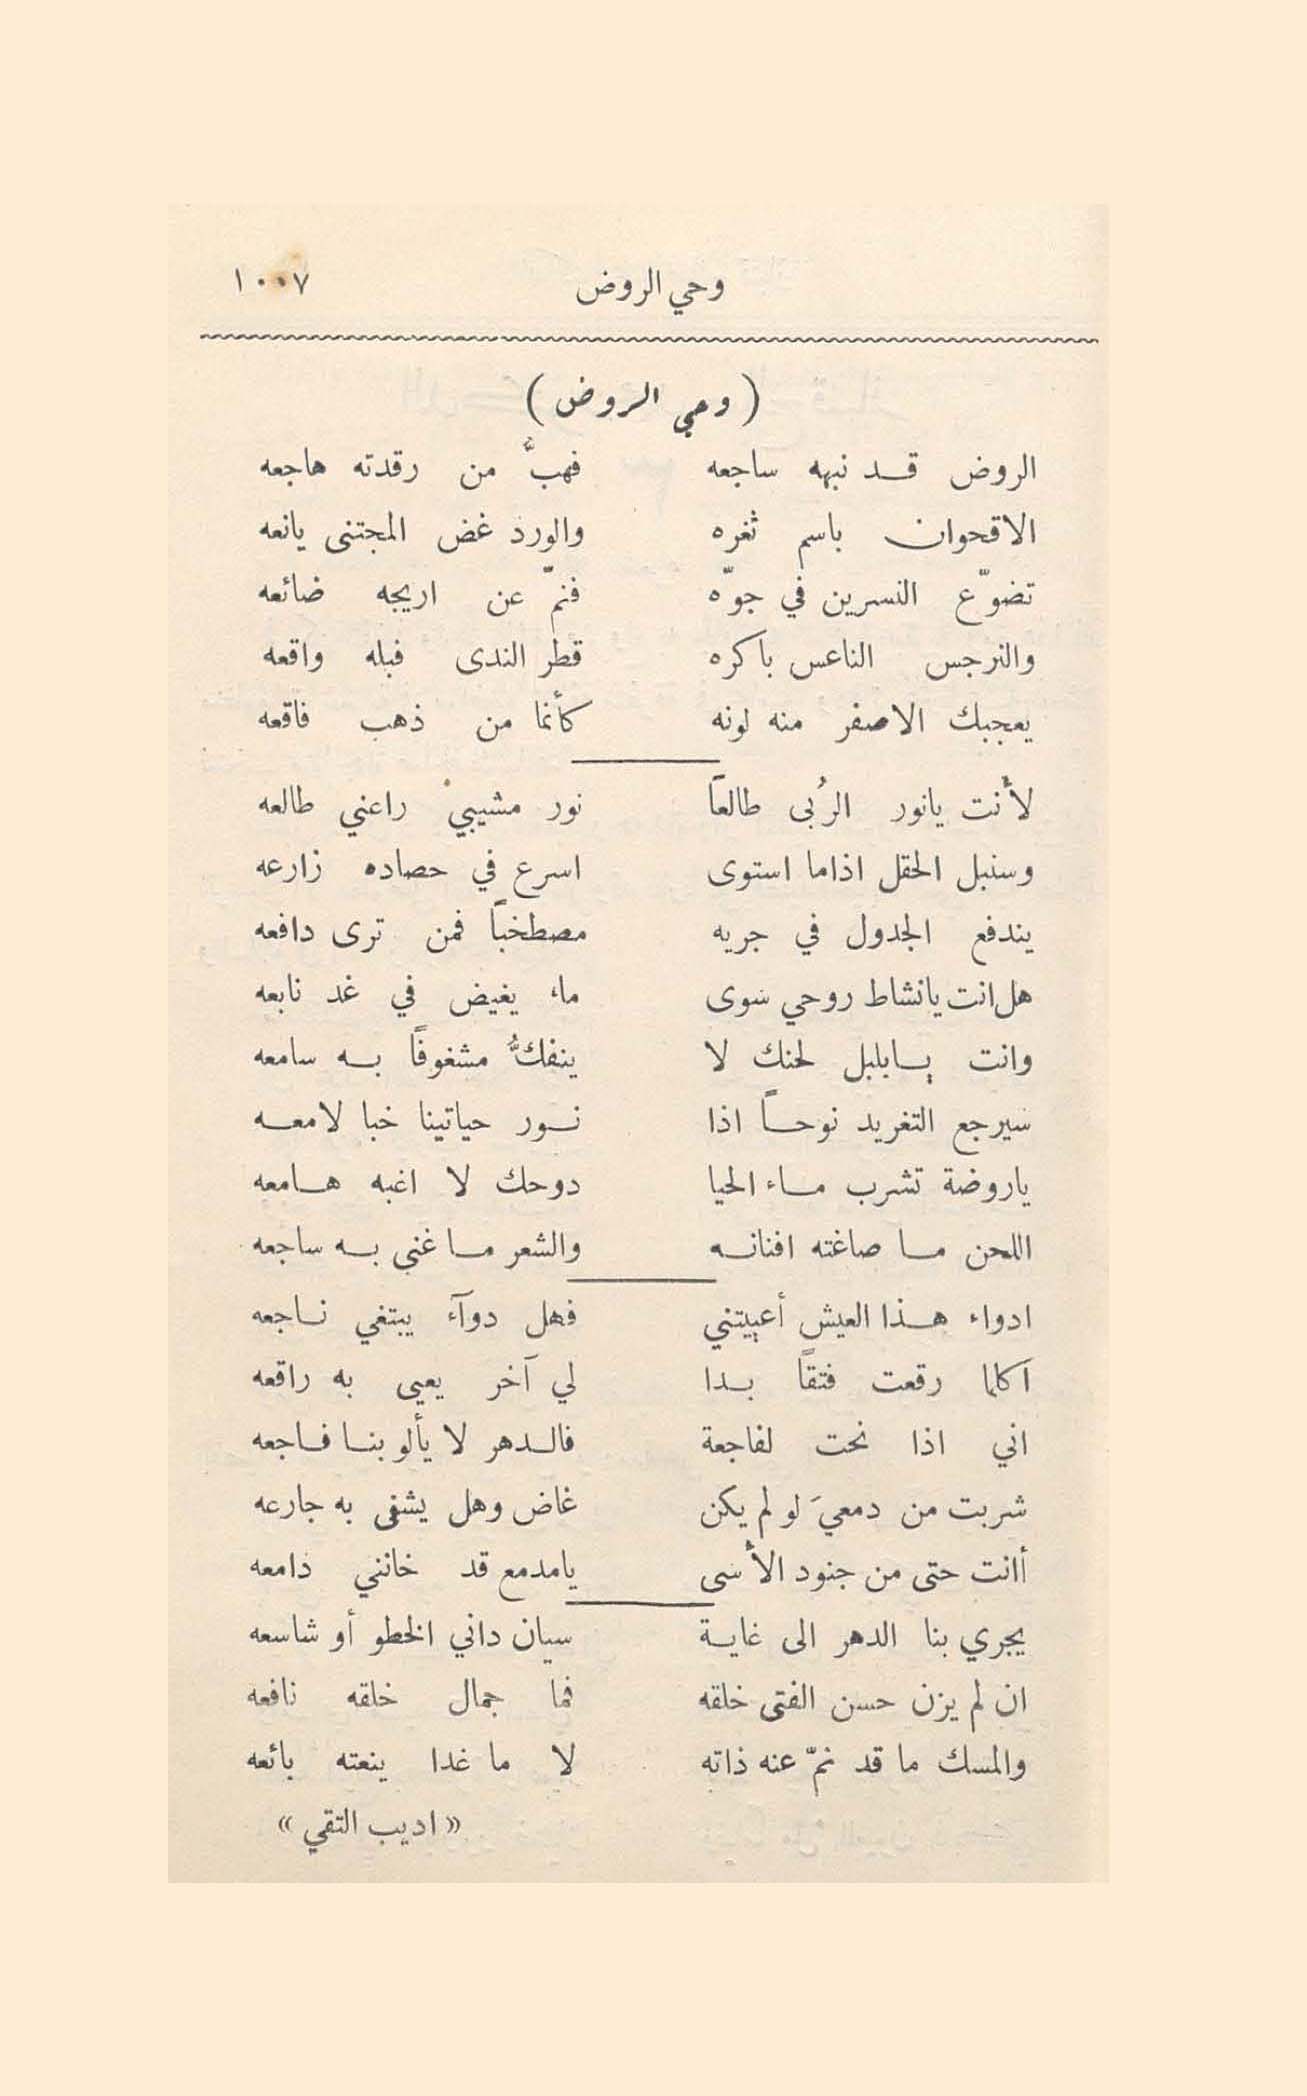 وحي الروض ١٠٠٧
( وحي الروض )
الروض قد نبهه ساجعه فهبَّ من رقدته هاجعه
الاقحوان باسم ثغره والورد غض المجتنى يانعه
تضوّع النسرين في جوّه فنمّ عن اريجه ضائعه
والنرجس الناعس باكره قطر الندى فبله واقعه
يعجبك الاصفر منه لونه كأنما من ذهب فاقعه
لأنت يانور الرُبى طالعاً نور مشيبي راعني طالعه
وسنبل الحقل اذاما استوى اسرع في حصاده زارعه
يندفع الجدول في جريه مصطخباً فمن ترى دافعه
هل انت يانشاط روحي سوى ماء يغيض في غد نابعه
وانت يابلبل لحنك لا ينفكُّ مشغوفاً به سامعه
سيرجع التغريد نوحاً اذا نور حياتينا خبا لامعه
ياروضة تشرب ماء الحيا دوحك لا اغبه هامعه
اللحن ما صاغته افنانه والشعر ما غنى به ساجعه
ادواء هذا العيش أعييتني فهل دوآء يبتغي ناجعه
أكلما رقعت فتقاً بدا لي آخر يعيى به راقعه
اني اذا نحت لفاجعة فالدهر لا يألو بنا فاجعه
شربت من دمعيَ لو لم يكن غاض وهل يشفى به جارعه
أانت حتى من جنود الأسى يامدمع قد خانني دامعه
يجري بنا الدهر الى غاية سيان داني الخطو أو شاسعه
ان لم يزن حسن الفتى خلقه فما جمال خلقه نافعه
والمسك ما قد نمّ عنه ذاته لا ما غدا ينعته بائعه
« اديب التقي »